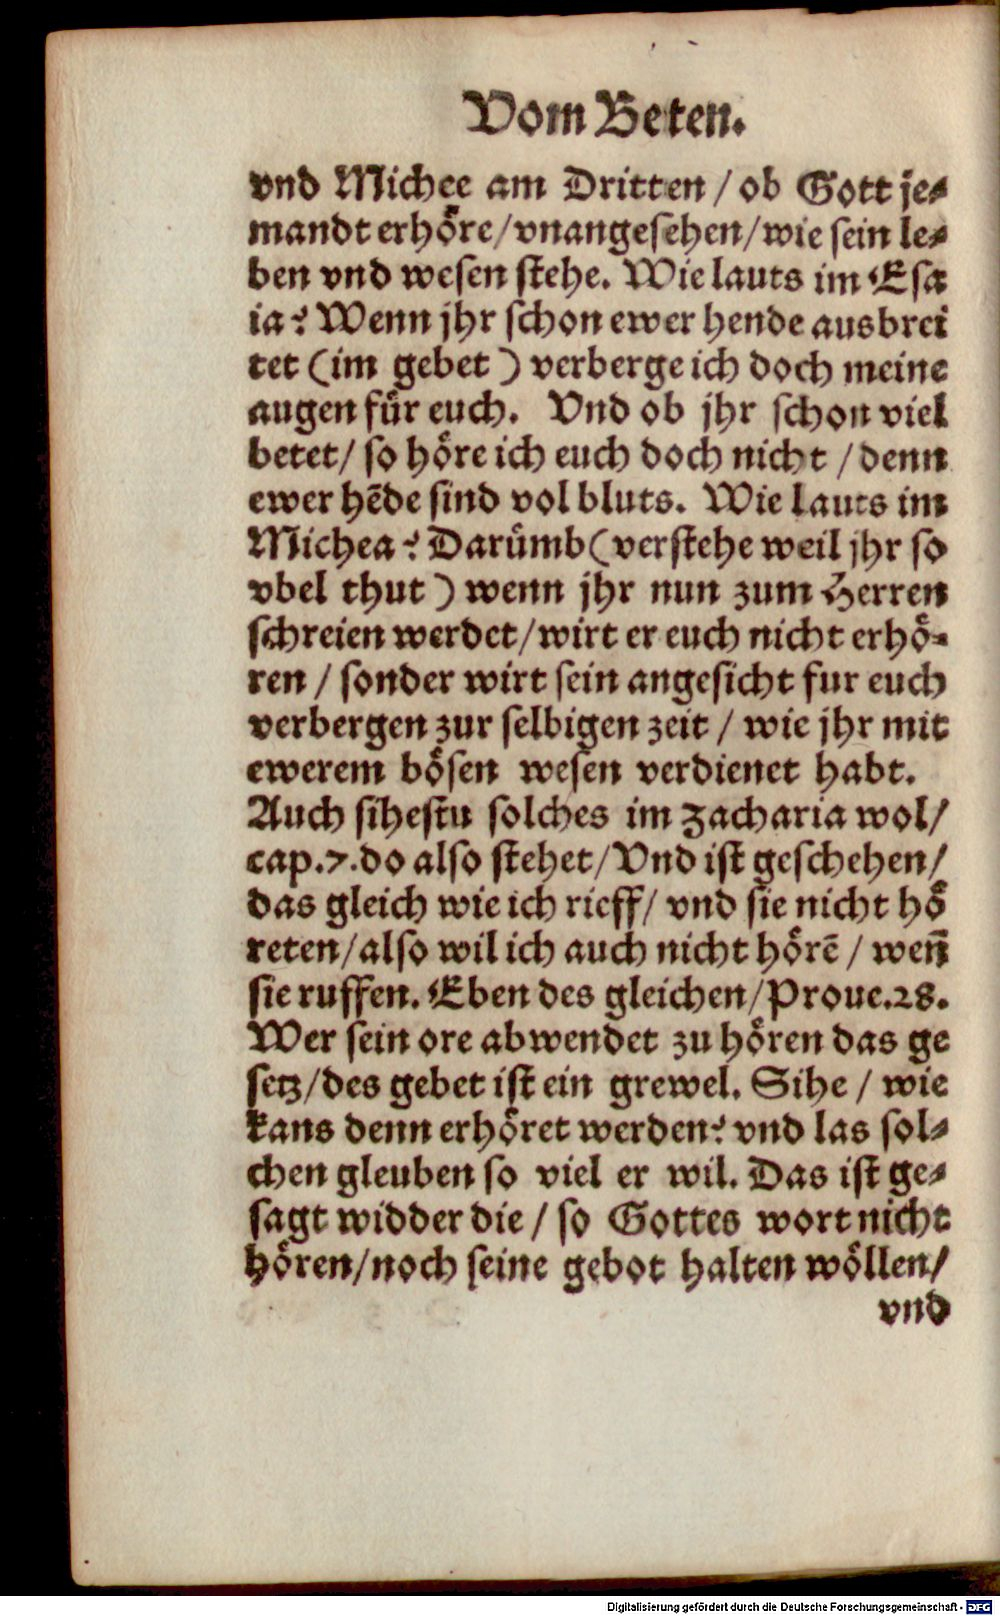 Vom Beten.
vnd Michee am Dritten / ob Gott je-
mandt erhöre/vnangesehen/wie sein le-
ben vnd wesen stehe. Wie lauts im Esa
ia? Wenn jhr schon ewer hende ausbrei
tet (im gebet) verberge ich doch meine
augen für euch. Vnd ob jhr schon viel
betet/ so höre ich euch doch nicht / denn
ewer hēde sind vol bluts. Wie lauts im
Michea? Darümb (verstehe weil jhr so
vbel thut) wenn jhr nun zum Herren
schreien werdet/wirt er euch nicht erhö-
ren / sonder wirt sein angesicht fur euch
verbergen zur selbigen zeit / wie jhr mit
ewerem bösen wesen verdienet habt.
Auch sihestu solches im Zacharia wol/
cap.7.do also stehet/Vnd ist geschehen/
das gleich wie ich rieff/ vnd sie nicht hö
reten/also wil ich auch nicht hörē / weñ
sie ruffen. Eben des gleichen/Proue.28.
Wer sein ore abwendet zu hören das ge
setz/des gebet ist ein grewel. Sihe / wie
kans denn erhöret werden? vnd las sol-
chen gleuben so viel er wil. Das ist ge-
sagt widder die / so Gottes wort nicht
hören/noch seine gebot halten wöllen/
vnd
Digitalisierung gefördert durch die Deutsche Forschungsgemeinschaft - DFG